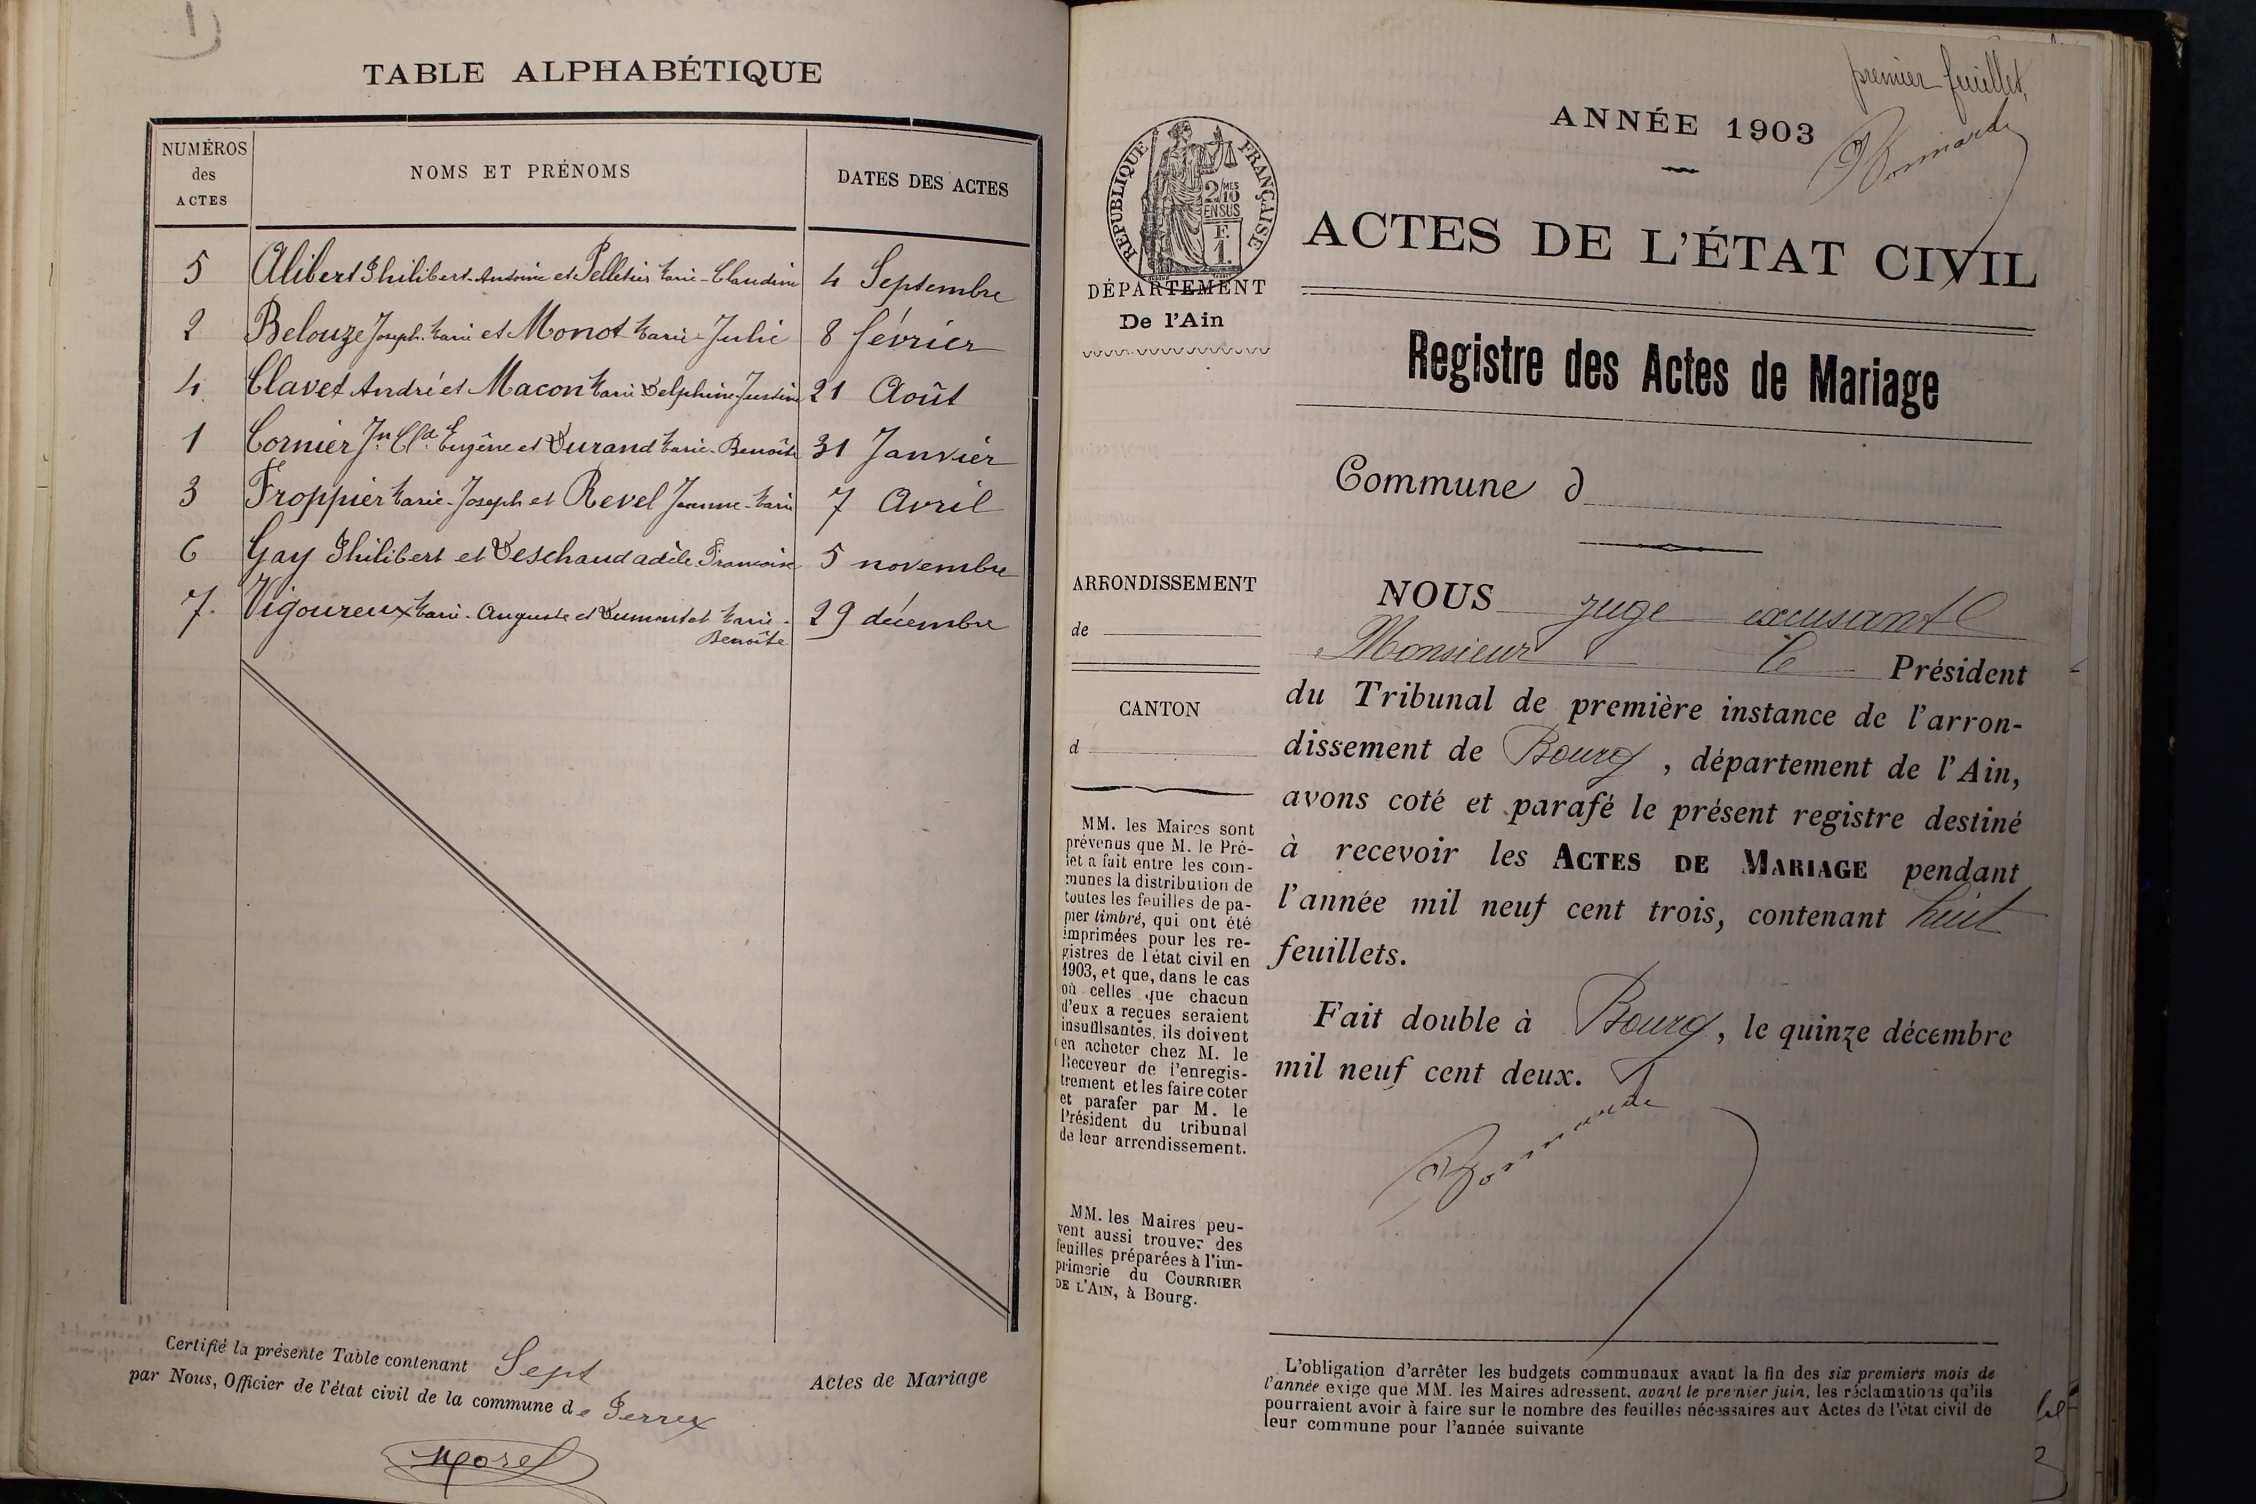 TABLE ALPHABÉTIQUE
NUMÉROS
des
ACTES
NOMS ET PRÉNOMS
DATES DES ACTES
5 Alibert Philibert-Antoine et Pelletier Marie-Claudine 4 Septembre
2 Belouze Joseph-Marie et Monot Marie-Julie 8 février
4 Clavet André et Macon Marie Delphine Justine 21 Août
1 Cornier Jn Cld Eugène et Durand Marie-Benoîte 31 Janvier
3 Froppier Marie-Joseph et Revel Jeanne-Marie 7 Avril
6 Gay Philibert et Deschaud adèle Françoise 5 novembre
7. Vigoureux Marie-Auguste et Dumontet Marie-
Benoîte
29 décembre
Certifié la présente Table contenant Sept Actes de Mariage
par Nous, Officier de l'état civil de la commune de Perrex
Morel
premier feuillet
ANNÉE 1903
REPUBLIQUE FRANÇAISE
2/MES
10
EN SUS
F.
1.
ACTES DE L'ÉTAT CIVIL
DÉPARTEMENT
De l'Ain
Registre des Actes de Mariage
Commune d
ARRONDISSEMENT
de
CANTON
d
MM. les Maires sont
prévenus que M. le Pré-
fet a fait entre les com-
munes la distribution de
toutes les feuilles de pa-
pier timbré, qui ont été
imprimées pour les re-
gistres de l'état civil en
1903, et que, dans le cas
où celles que chacun
d'eux a reçues seraient
insuffisantes, ils doivent
en acheter chez M. le
Receveur de l'enregis-
trement et les faire coter
et parafer par M. le
Président du tribunal
de leur arrondissement.
MM. les Maires peu-
vent aussi trouver des
feuilles préparées à l'im-
primerie du COURRIER
DE L'AIN, à Bourg.
NOUS juge
Monsieur le Président
du Tribunal de première instance de l'arron-
dissement de Bourg, département de l'Ain,
avons coté et parafé le présent registre destiné
à recevoir les ACTES DE MARIAGE pendant
l'année mil neuf cent trois, contenant huit
feuillets.
Fait double à Bourg, le quinze décembre
mil neuf cent deux.
L'obligation d'arrêter les budgets communaux avant la fin des six premiers mois de
l'année exige que MM. les Maires adressent, avant le premier juin, les réclamations qu'ils
pourraient avoir à faire sur le nombre des feuilles nécessaires aux Actes de l'état civil de
leur commune pour l'année suivante